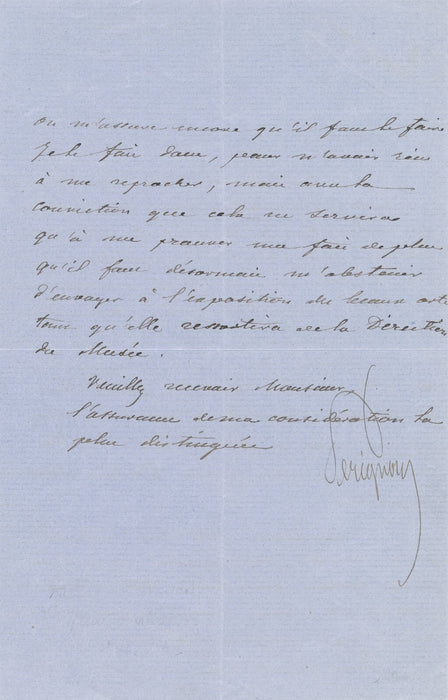 on m'assure encore qu'il faut le faire
Je le fais donc, pour n'avoir rien
à me reprocher, mais avec la
conviction que cela ne servira
qu'à me prouver une fois de plus
qu'il faut désormais m'abstenir
d'envoyer à l'exposition des beaux arts
tant qu'elle ressortira de la Direction
du Musée.
Veuillez recevoir Monsieur
l'assurance de ma considération la
plus distinguée
Perignon